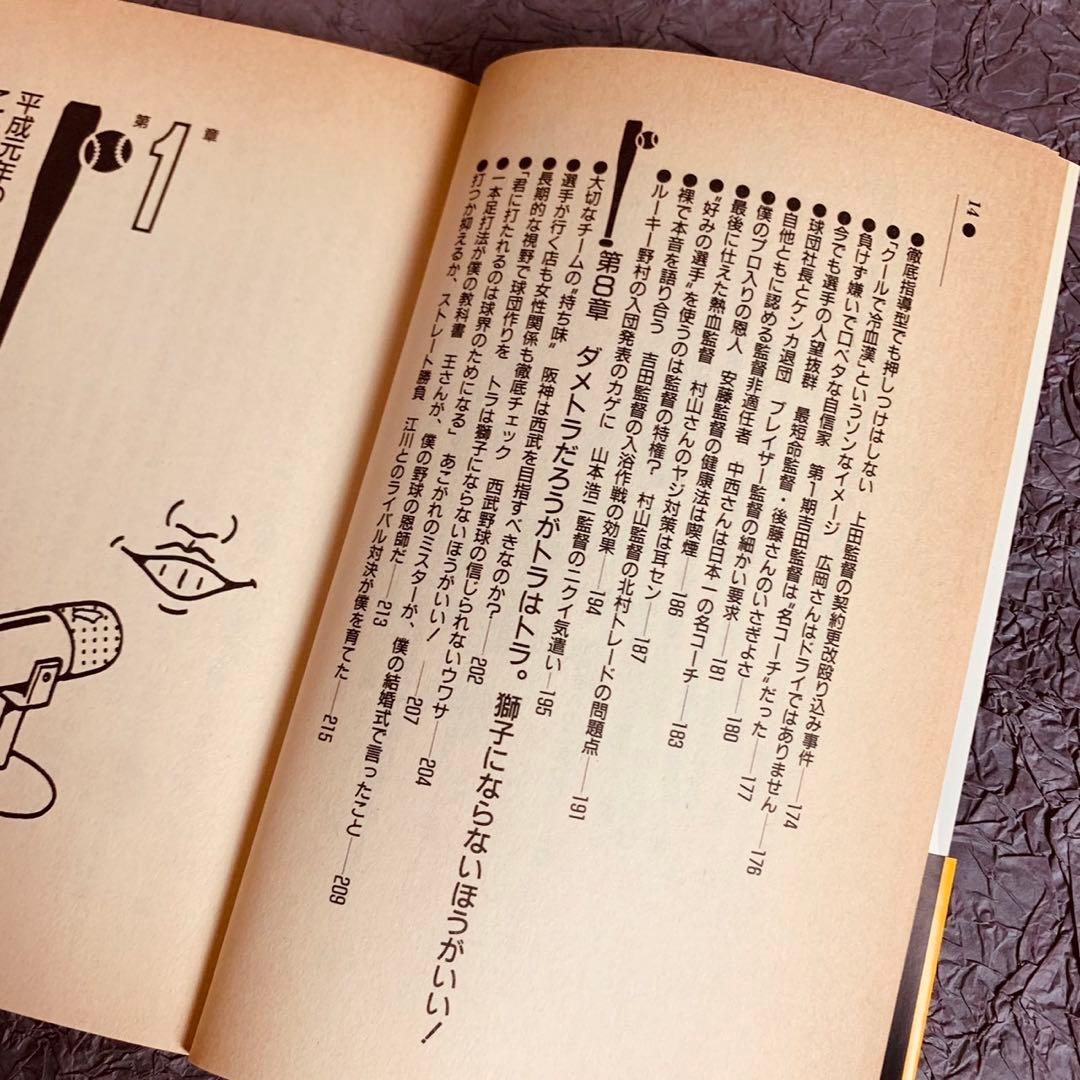 14●
●徹底指導型でも押しつけはしない　上田監督の契約更改殴り込み事件——174
●「クールで冷血漢」というソンなイメージ　広岡さんはドライではありません——176
●負けず嫌いで口ベタな自信家　第1期吉田監督は〝名コーチ〟だった——177
●今でも選手の人望抜群　最短命監督・後藤さんのいさぎよさ——180
●球団社長とケンカ退団　ブレイザー監督の細かい要求——181
●自他ともに認める監督非適任者　中西さんは日本一の名コーチ——183
●僕のプロ入りの恩人　安藤監督の健康法は喫煙——186
●最後に仕えた熱血監督　村山さんのヤジ対策は耳セン——187
●〝好みの選手〟を使うのは監督の特権？　村山監督の北村トレードの問題点——191
●裸で本音を語り合う　吉田監督の入浴作戦の効果——194
●ルーキー野村の入団発表のカゲに　山本浩二監督のニクイ気遣い——195
第8章　ダメトラだろうがトラはトラ。獅子にならないほうがいい！
●大切なチームの〝持ち味〟　阪神は西武を目指すべきなのか？——202
●選手が行く店も女性関係も徹底チェック　西武野球の信じられないウワサ——204
●長期的な視野で球団作りを　トラは獅子にならないほうがいい！——207
●「君に打たれるのは球界のためになる」　あこがれのミスターが、僕の結婚式で言ったこと——209
●一本足打法が僕の教科書　王さんが、僕の野球の恩師だ——213
●打つか抑えるか、ストレート勝負　江川とのライバル対決が僕を育てた——215
第1章
平成元年の